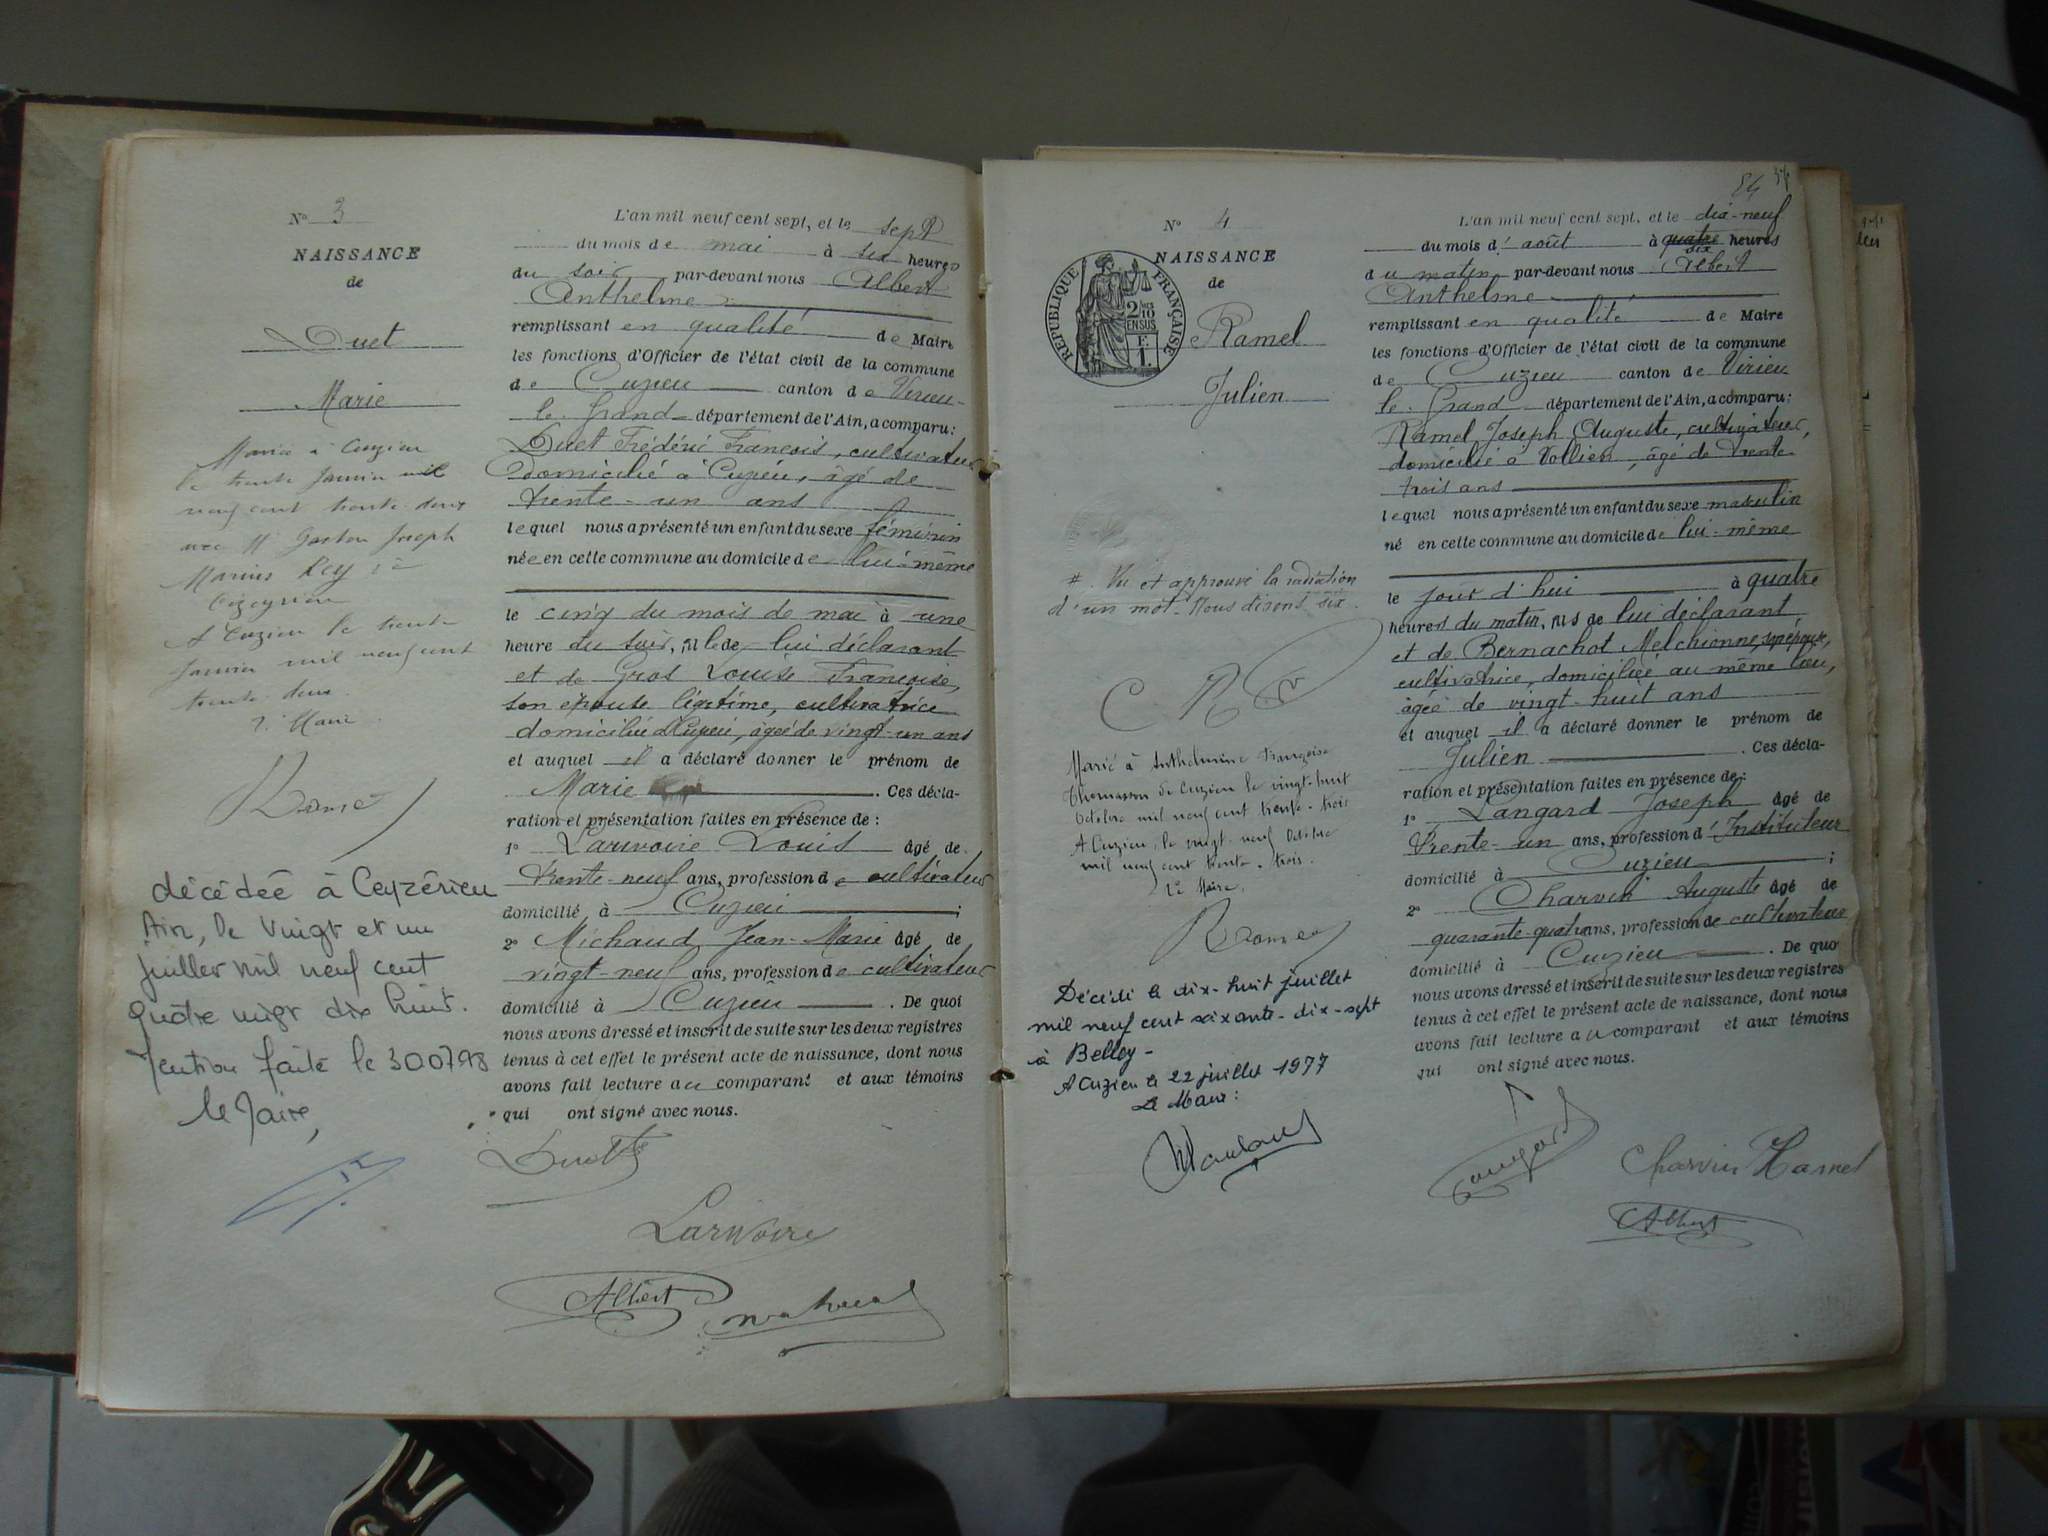 N° 3
NAISSANCE
de
Duet
Marie
Mariée à Cuzieu
le trente Janvier mil
neuf cent trente deux
avec Mr Gaston Joseph
Marius Rey
A Cuzieu le trente
Janvier mil neuf cent
trente deux
Le Maire
décédée à Ceyzérieu
Ain, le Vingt et un
juillet mil neuf cent
quatre vingt dix huit.
Mention faite le 300798
le Maire,
L'an mil neuf cent sept, et le sept
du mois de mai à six heures
du soir par-devant nous Albert
Anthelme
remplissant en qualité de Maire
les fonctions d'Officier de l'état civil de la commune
de Cuzieu canton de Virieu-
le-Grand département de l'Ain, a comparu:
Duet Frédéric François, cultivateur
domicilié à Cuzieu, âgé de
trente-un ans
lequel nous a présenté un enfant du sexe féminin
née en cette commune au domicile de lui-même
le cinq du mois de mai à une
heure du soir, fille de lui déclarant
et de Gros Louise Françoise,
son épouse légitime, cultivatrice
domiciliée à Cuzieu, âgée de vingt-un ans
et auquel il a déclaré donner le prénom de
Marie . Ces décla-
ration et présentation faites en présence de :
1° Larivoire Louis âgé de
trente-neuf ans, profession de cultivateur
domicilié à Cuzieu ;
2° Michaud Jean-Marie âgé de
vingt-neuf ans, profession de cultivateur
domicilié à Cuzieu . De quoi
nous avons dressé et inscrit de suite sur les deux registres
tenus à cet effet le présent acte de naissance, dont nous
avons fait lecture au comparant et aux témoins
qui ont signé avec nous.
Duet
Larivoire
Albert
84
N° 4
NAISSANCE
de
Ramel
Julien
RÉPUBLIQUE FRANÇAISE
2/10
EN SUS
F.
1.
#. Vu et approuvé la radiation
d'un mot. Nous disons six.
Marié à Anthelmine Françoise
Thomasson de Cuzieu le vingt-huit
Octobre mil neuf cent trente-trois
A Cuzieu, le vingt-neuf Octobre
mil neuf cent trente-trois.
Le Maire,
Décédé le dix-huit juillet
mil neuf cent soixante-dix-sept
à Belley -
A Cuzieu le 22 juillet 1977
Le Maire :
L'an mil neuf cent sept, et le dix-neuf
du mois d'août à quatre six heures
du matin par-devant nous Albert
Anthelme
remplissant en qualité de Maire
les fonctions d'Officier de l'état civil de la commune
de Cuzieu canton de Virieu
le-Grand département de l'Ain, a comparu:
Ramel Joseph Auguste, cultivateur,
domicilié à Vollien, âgé de trente-
trois ans
lequel nous a présenté un enfant du sexe masculin
né en cette commune au domicile de lui-même
le jour d'hui à quatre
heures du matin, fils de lui déclarant
et de Bernachot Melchionne, son épouse,
cultivatrice, domiciliée au même lieu,
âgée de vingt-huit ans
et auquel il a déclaré donner le prénom de
Julien . Ces décla-
ration et présentation faites en présence de :
1° Langard Joseph âgé de
trente-un ans, profession d'Instituteur
domicilié à Cuzieu ;
2° Charvin Auguste âgé de
quarante-quatre ans, profession de cultivateur
domicilié à Cuzieu . De quo
nous avons dressé et inscrit de suite sur les deux registres
tenus à cet effet le présent acte de naissance, dont nous
avons fait lecture au comparant et aux témoins
qui ont signé avec nous.
Langard
Charvin Ramel
Albert